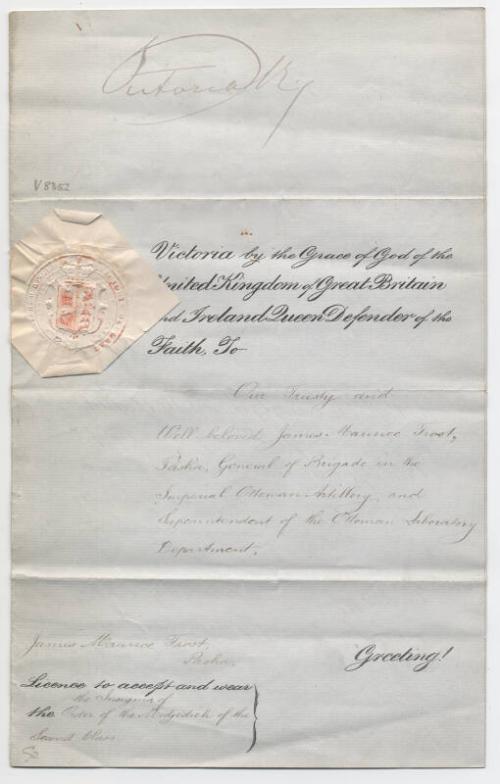 Victoria R
V8352
Victoria by the Grace of God of the
United Kingdom of Great Britain
and Ireland Queen Defender of the
Faith, To
Our Trusty and
Well beloved James Maurice Frost,
Pasha, General of Brigade in the
Imperial Ottoman Artillery, and
Superintendent of the Ottoman Laboratory
Department,
Greeting!
James Maurice Frost,
Pasha.
Licence to accept and wear
the Insignia of
the Order of the Medjidieh of the
Second Class.